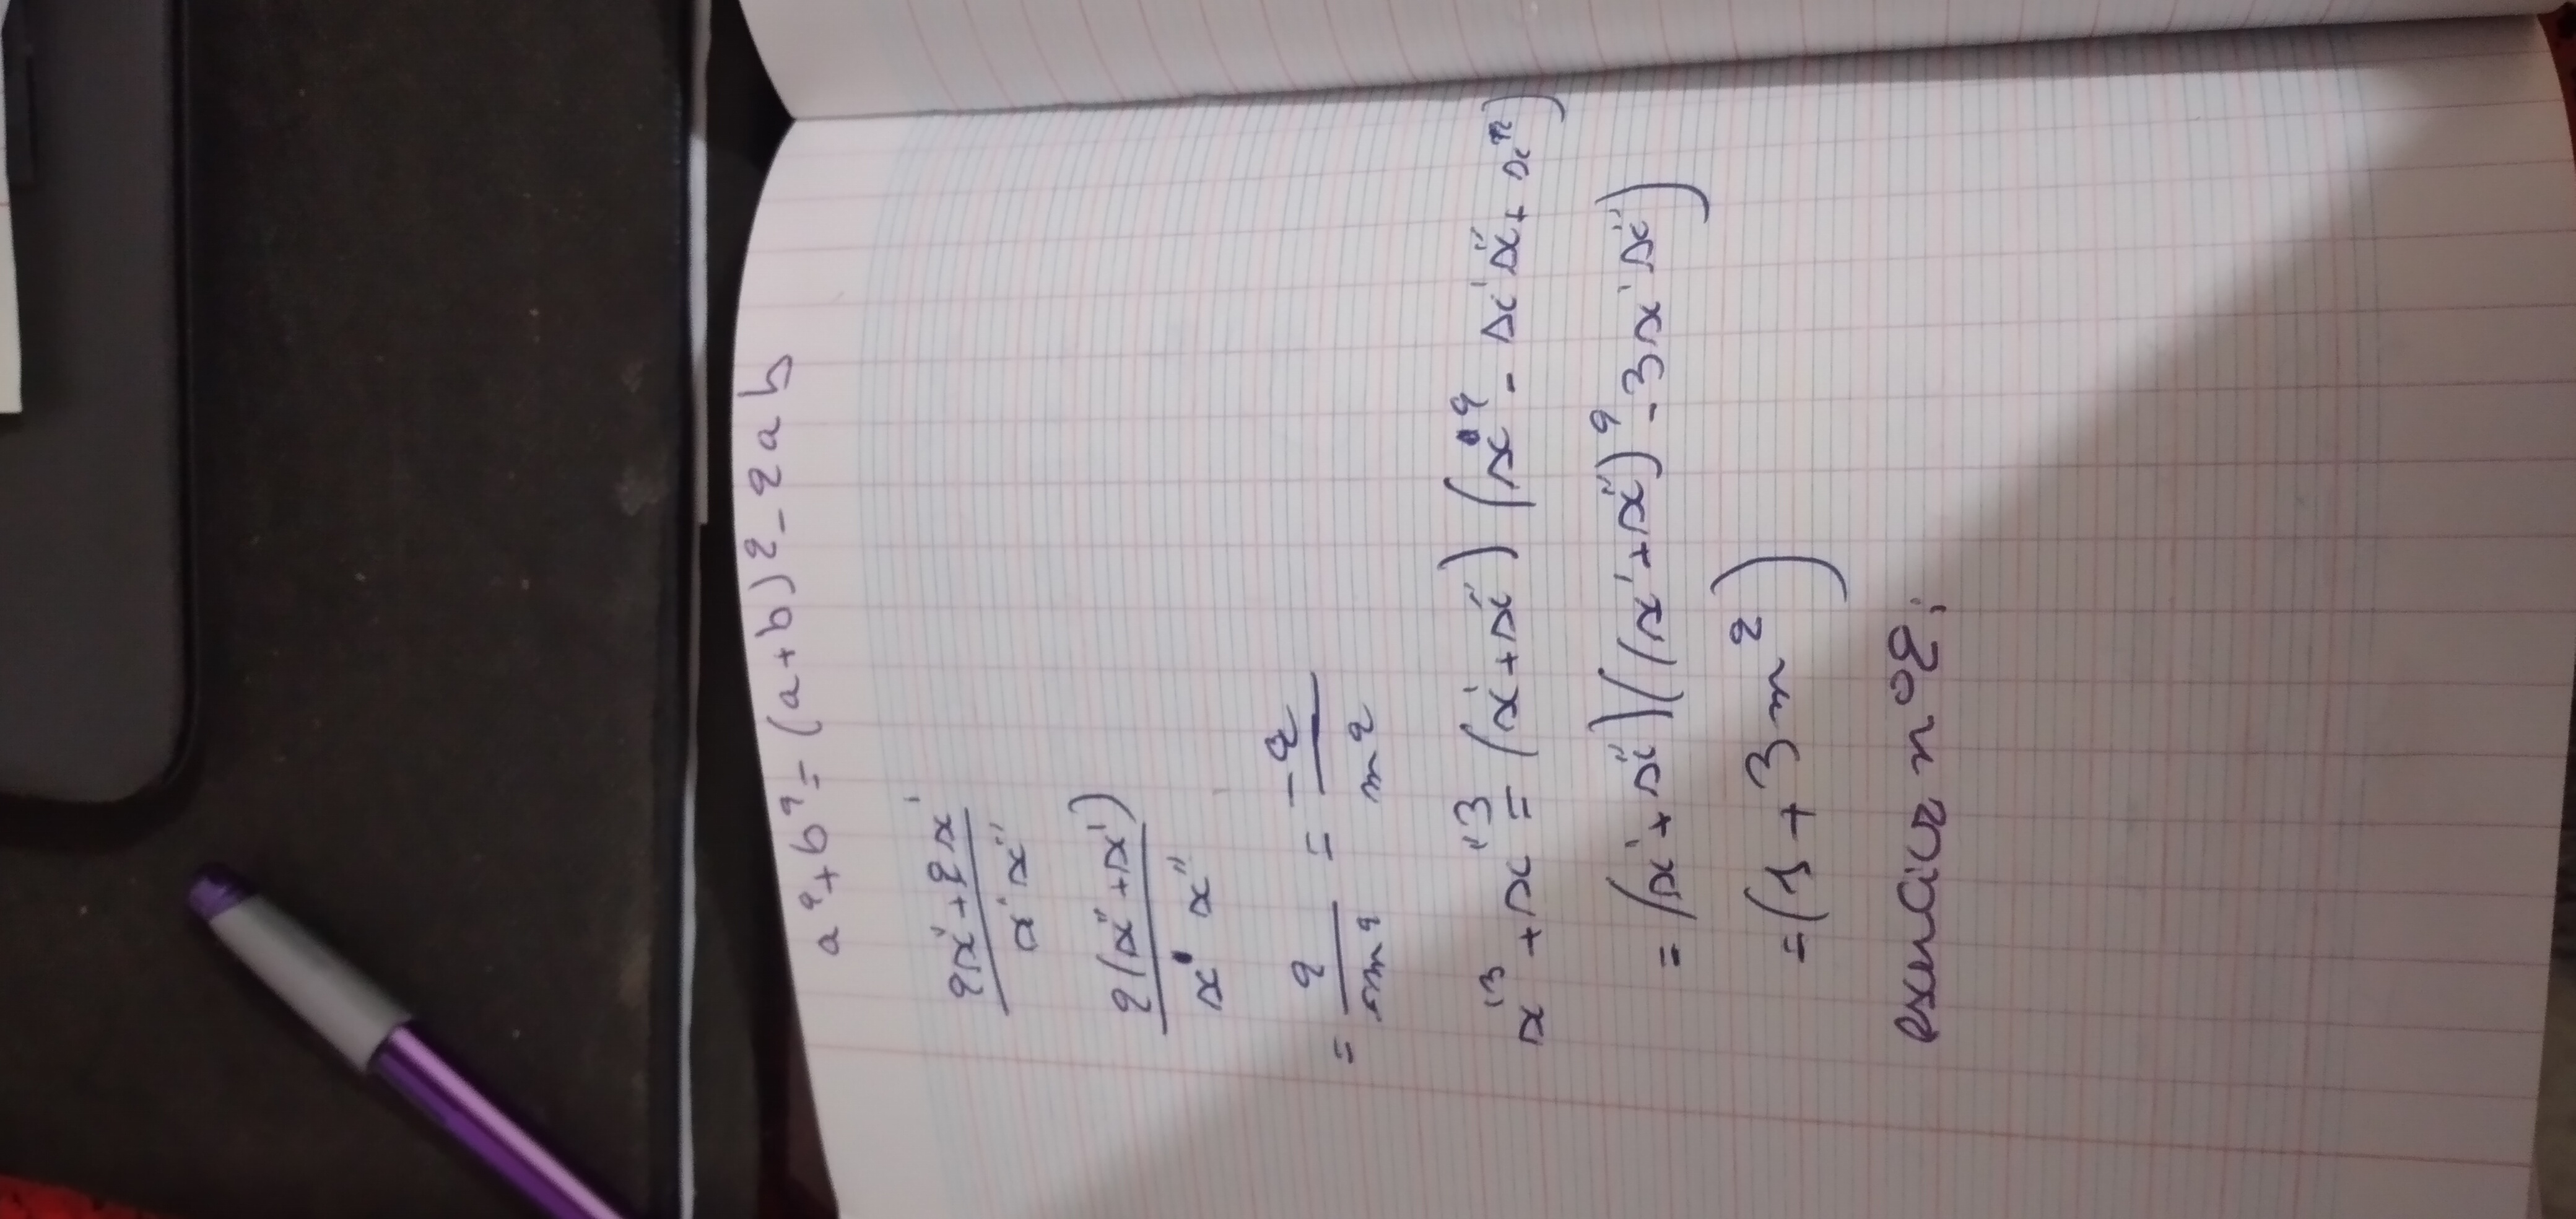 a² + b² = (a+b)2 - 2ab
2x' + 2x'
x' x''
2(x'' + x')
x' x''
= 2/m² = -2/m²
x'³ + x''³ = (x' + x'') (x'² - x'x'' + x''²)
= (x' + x'')((x' + x'')² - 3x'x'')
= (1 + 3m²)
exercice n°2: